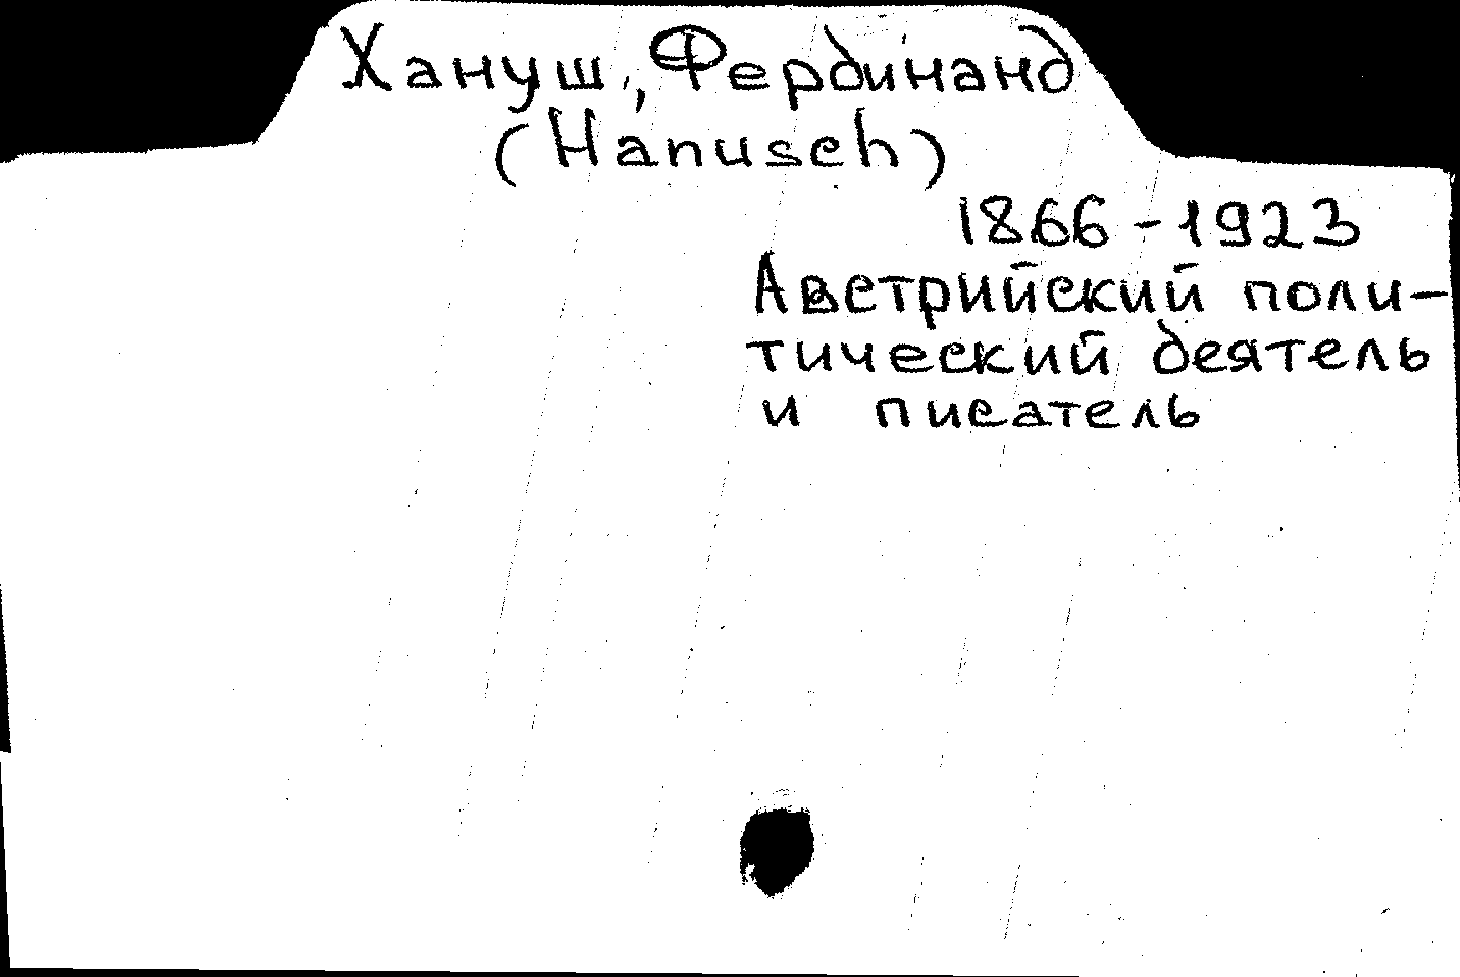 Хануш, Фердинанд
(Hanusch)
1866-1923
Австрийский поли-
тический деятель
и писатель